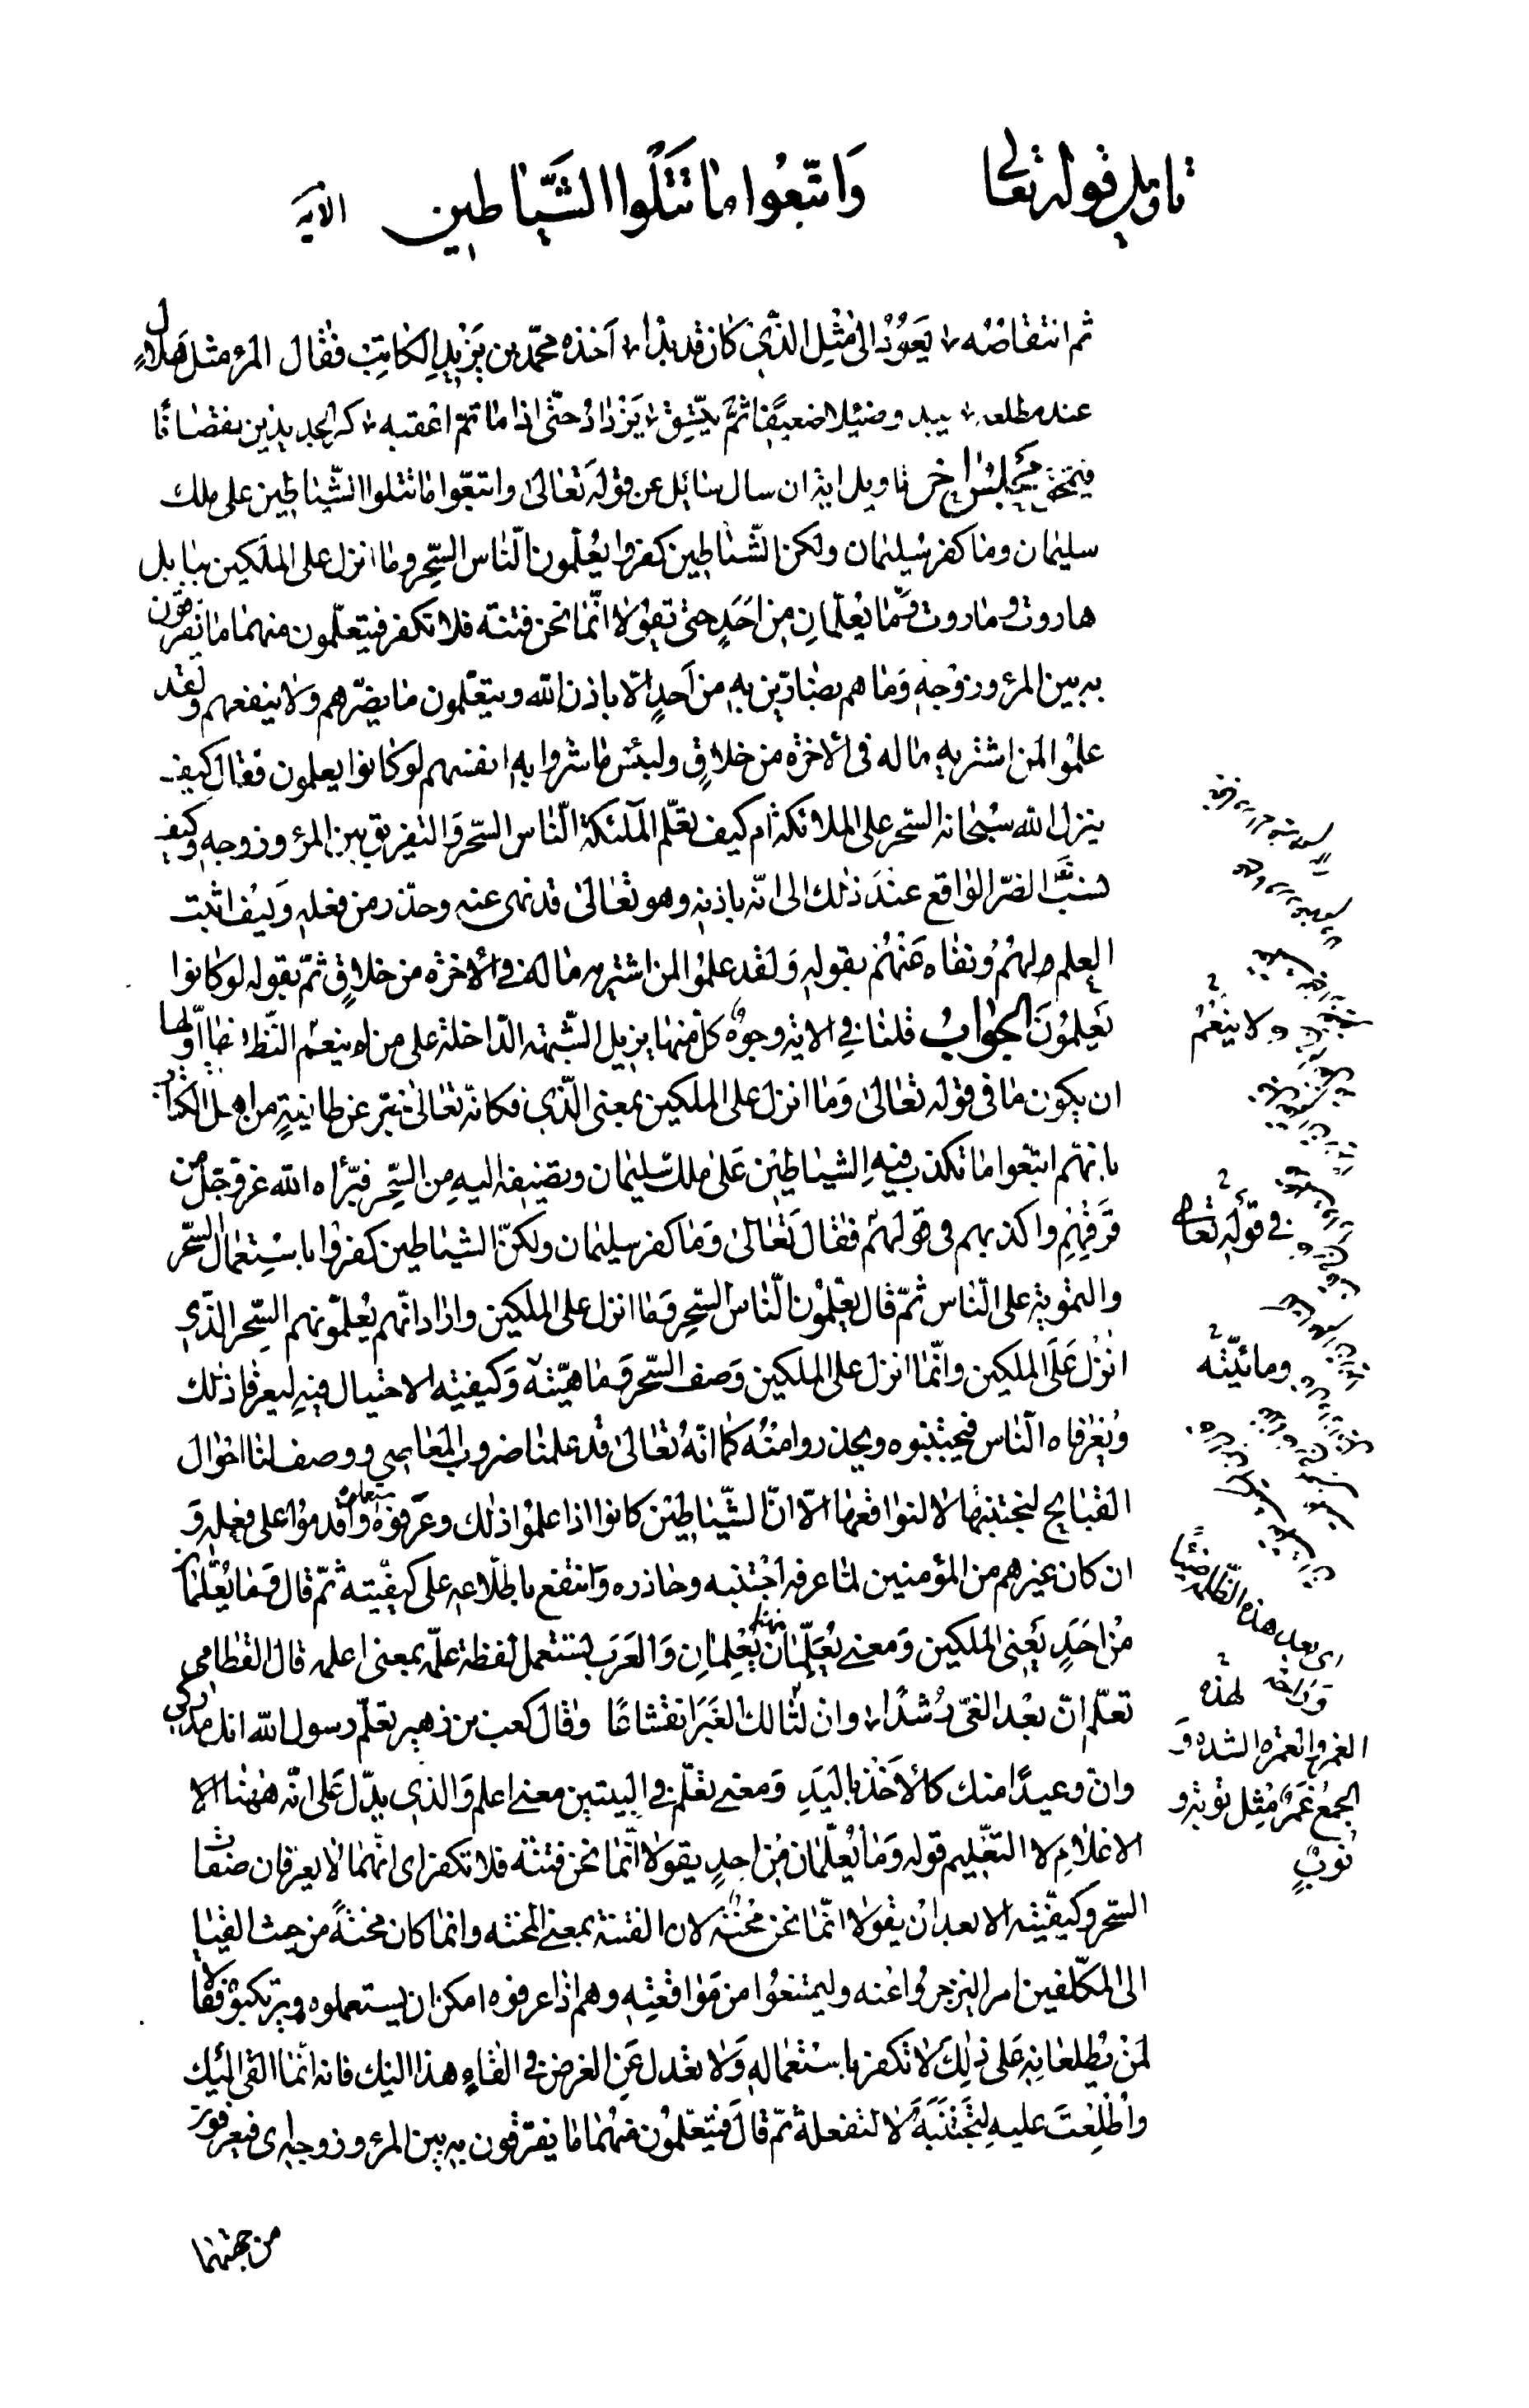 تاويل قوله تعالى واتبعوا ما تتلوا الشياطين الاية
ثم انتقاصه يعود الى مثل الذي كان قد بدا اخذه محمد بن يزيد الكاتب فقال المرء مثل هلال
عند مطلعه يبدو ضئيلا ضعيفا ثم يتسق يزداد حتى اذا ما تم اعقبه كر الجديدين نقصانا
فيمحق مجلس اخر تاويل اية ان سال سائل عن قوله تعالى واتبعوا ما تتلوا الشياطين على ملك
سليمان وما كفر سليمان ولكن الشياطين كفروا يعلمون الناس السحر وما انزل على الملكين ببابل
هاروت وماروت وما يعلمان من احد حتى تقولا انما نحن فتنة فلا تكفر فيتعلمون منهما ما يفرقون
به بين المرء وزوجه وما هم بضارين به من احد الا باذن الله ويتعلمون ما يضرهم ولا ينفعهم ولقد
علموا لمن اشتريه ماله في الاخرة من خلاق ولبئس ما شروا به انفسهم لو كانوا يعلمون فقال كيف
ينزل الله سبحانه السحر على الملائكة ام كيف تعلم الملئكة الناس السحر والتفريق بين المرء وزوجه وكيف
نسب الضر الواقع عند ذلك الى انه باذنه وهو تعالى قد نهى عنه وحذر من فعله وكيف اثبت
العلم لهم ونفاه عنهم بقوله ولقد علموا لمن اشتريه ماله في الاخرة من خلاق ثم بقوله لو كانوا
يعلمون الجواب قلنا في الاية وجوه كل منها يزيل الشبهة الداخلة على من لا ينعم النظر فيها اولها
ان يكون ما في قوله تعالى وما انزل على الملكين بمعنى الذي فكانه تعالى خبر عن طائفة من اهل الكتاب
بانهم اتبعوا ما تكذب فيه الشياطين على ملك سليمان وتضيفه اليه من السحر فبراه الله عز وجل من
قرفهم واكذبهم في قولهم فقال تعالى وما كفر سليمان ولكن الشياطين كفروا باستعمال السحر
والتمويه على الناس ثم قال يعلمون الناس السحر وما انزل على الملكين واراد انهم يعلمونهم السحر الذي
انزل على الملكين وانما انزل على الملكين وصف السحر وماهيته وكيفية الاحتيال فيه ليعرفا ذلك
ويعرفاه الناس فيجتنبوه ويحذروا منه كما انه تعالى قد علمنا ضروب المعاصي ووصف لنا احوال
القبايح لنجتنبها لا لنواقعها الا ان الشياطين كانوا اذا علموا ذلك وعرفوه واقدموا على فعله و
ان كان غيرهم من المؤمنين لما عرفه اجتنبه وحاذره وانتفع باطلاعه على كيفيته ثم قال وما يعلمان
من احد يعني الملكين ومعنى يعلمان يعلمان والعرب تستعمل لفظة علمه بمعنى اعلمه قال القطامي
تعلم ان بعد الغي رشدا وان لتالك الغبر انقشاعا وقال كعب بن زهير تعلم رسول الله انك مدركي
وان وعيدا منك كالاخذ باليد ومعنى تعلم في البيتين معنى اعلم والذي يدل على انه ههنا الا
الاعلام لا التعليم قوله وما يعلمان من احد يقولا انما نحن فتنة فلا تكفر اي انهما لا يعرفان صفات
السحر وكيفيته الا بعد ان يقولا انما نحن محنة لان الفتنة بمعنى المحنة وانما كان محنة من حيث القيا
الى المكلفين امرا لينزجروا عنه وليمتنعوا من مواقعته وهم اذا عرفوه امكن ان يستعملوه ويرتكبوه فقالا
لمن يطلعانه على ذلك لا تكفر باستعماله ولا تعدل عن الغرض في القاء هذا اليك فانه انما القي اليك
واطلعت عليه لتجتنبه لا لتفعله ثم قال فيتعلمون منهما ما يفرقون به بين المرء وزوجه اي فيعرفون
من جهتهما
ولا ينعم
في قوله تعالى
ومائيته
اي بعد هذه الظلمة ضياء
لهذه
الغمر والغمرة الشدة و
الجمع غمر مثل نوبة و
نوب